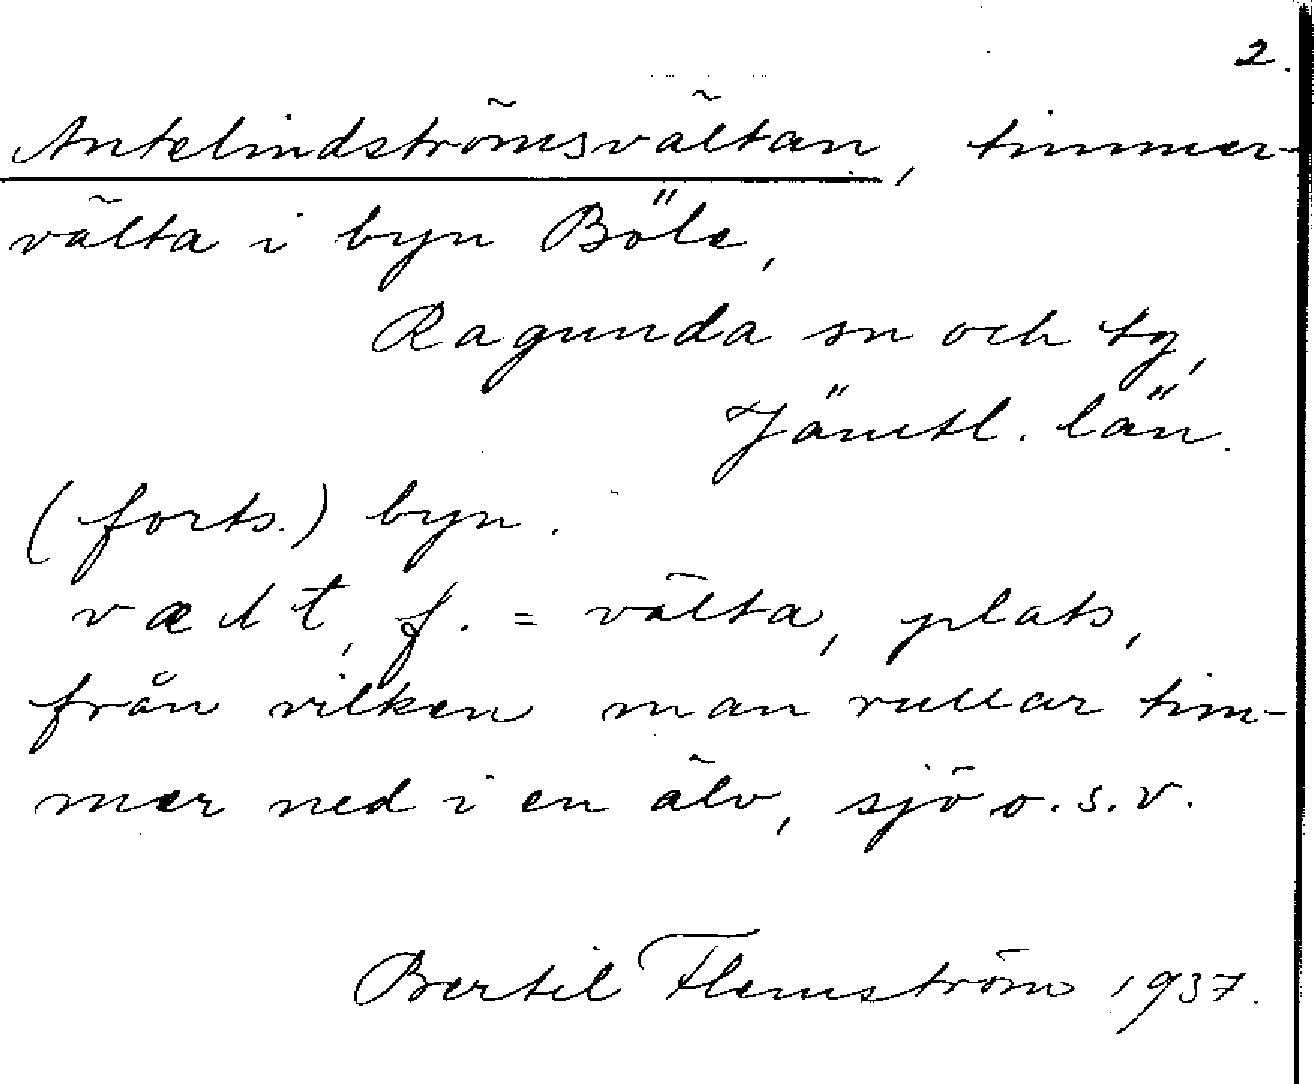 2.
Antelindströmsvältan, timmer-
välta i byn Böle,
Ragunda sn och tg,
Jämtl. län.
(forts.) byn.
væłt, f. = välta, plats,
från vilken man rullar tim-
mer ned i en älv, sjö o.s.v.
Bertil Flemström 1937.